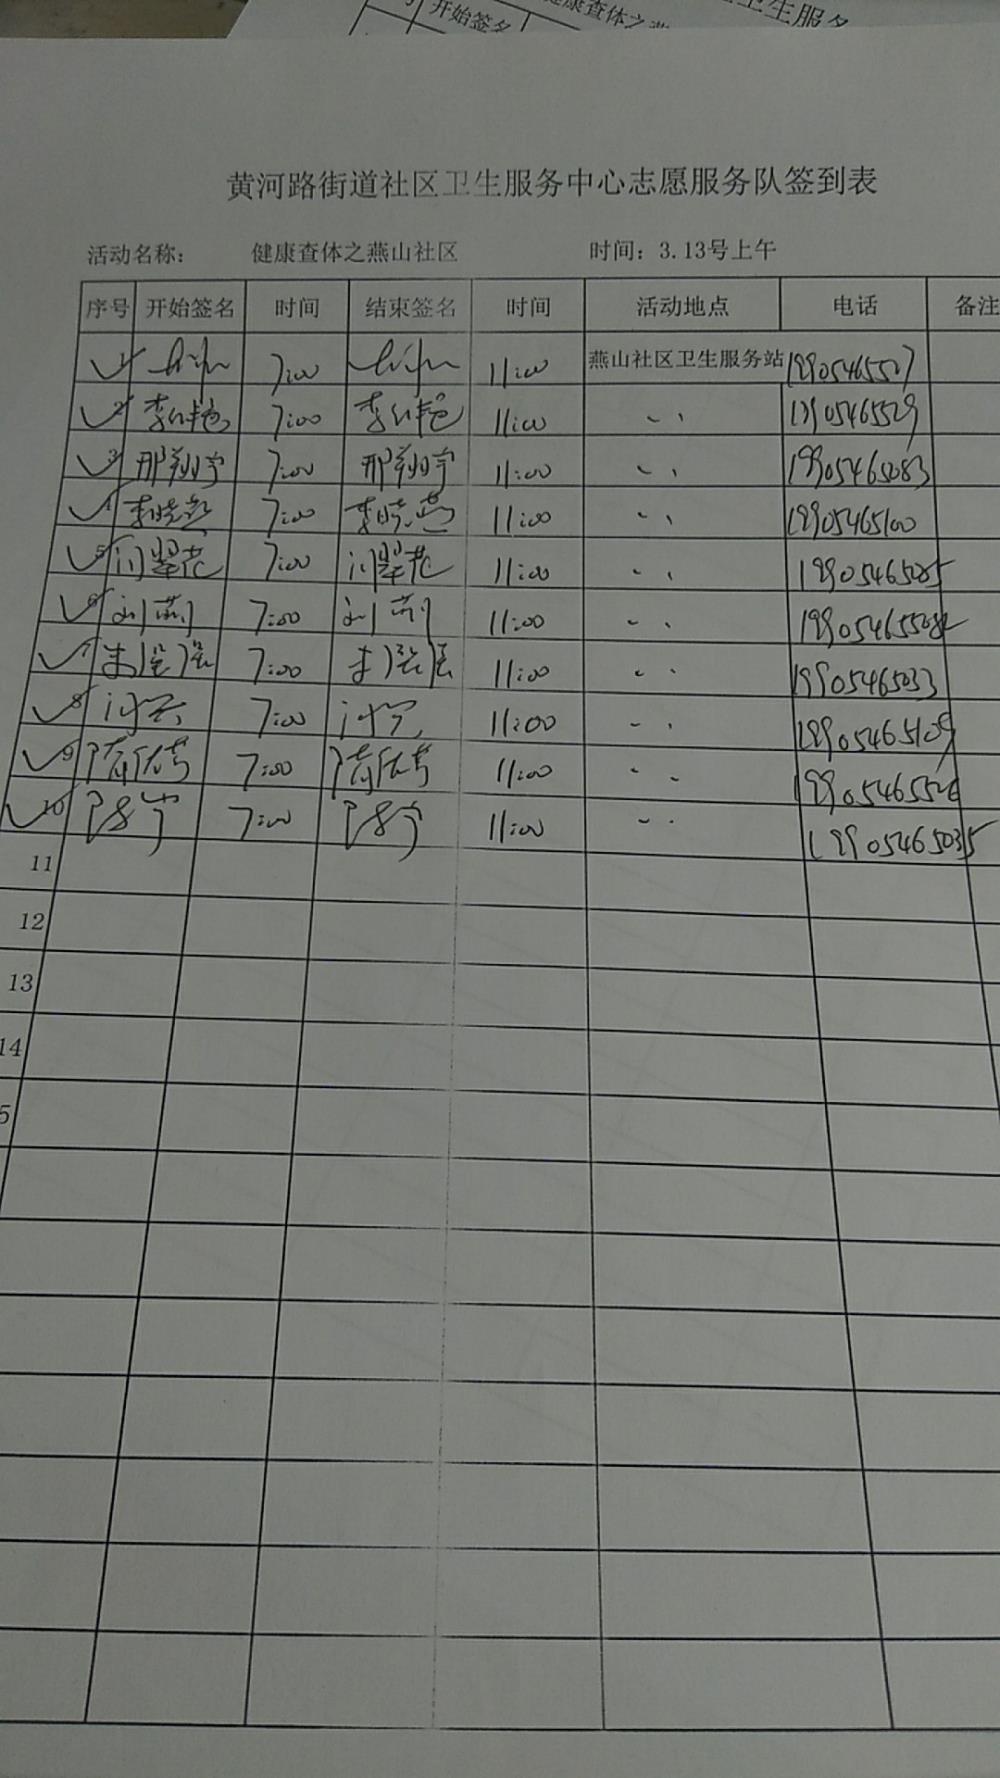 开始签名
健康查体之燕
卫生服务
黄河路街道社区卫生服务中心志愿服务队签到表
活动名称: 健康查体之燕山社区 时间: 3.13号上午
序号 开始签名 时间 结束签名 时间 活动地点 电话 备注
1 7:00 11:00 燕山社区卫生服务站 19905465527
2 7:00 11:00 19905465529
3 邢翔宇 7:00 邢翔宇 11:00 19905465083
4 李晓燕 7:00 李晓燕 11:00 19905465100
5 闫翠花 7:00 闫翠花 11:00 19905465085
6 刘莉 7:00 刘莉 11:00 19905465082
7 7:00 11:00 19905465033
8 7:00 11:00 19905465109
9 7:00 11:00 19905465526
10 7:00 11:00 19905465035
11
12
13
14
5